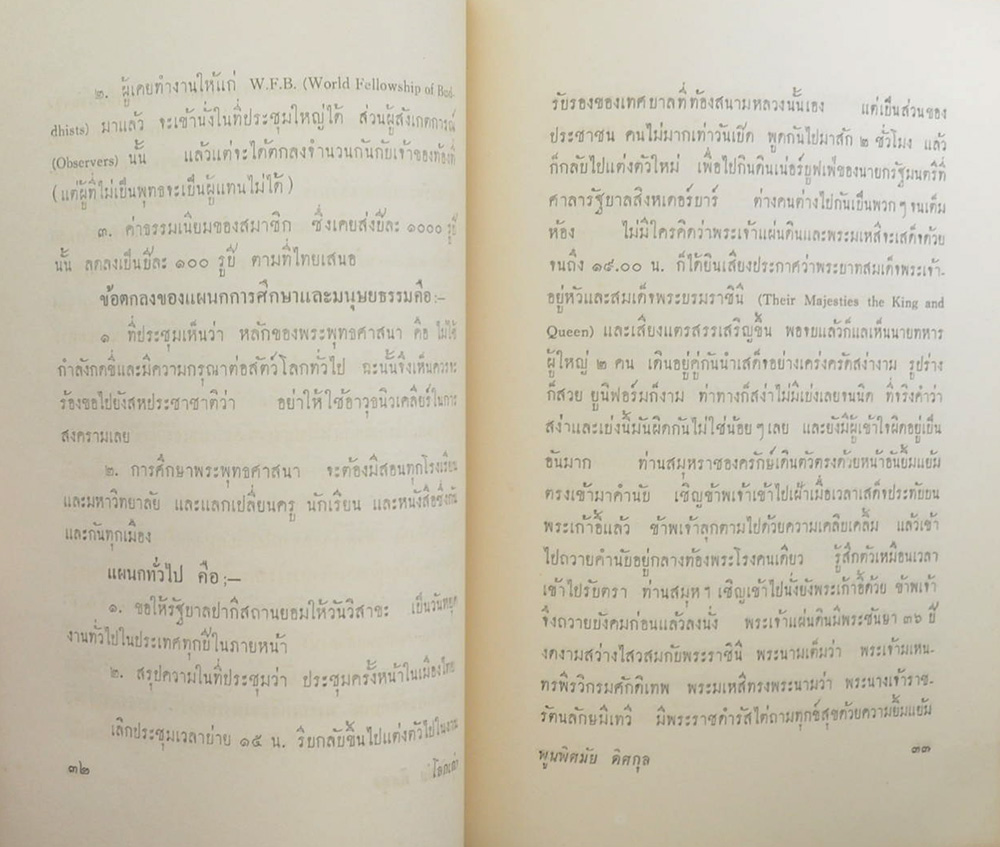 ๒. ผู้เคยทำงานให้แก่ W.F.B. (World Fellowship of Bud-
dhists) มาแล้ว จะเข้านั่งในที่ประชุมใหญ่ได้ ส่วนผู้สังเกตการณ์
(Observers) นั้น แล้วแต่จะได้ตกลงจำนวนกันกับเจ้าของท้องที่
(แต่ผู้ที่ไม่เป็นพุทธจะเป็นผู้แทนไม่ได้)
๓. ค่าธรรมเนียมของสมาชิก ซึ่งเคยส่งปีละ ๑๐๐๐ รูปี
นั้น ลดลงเป็นปีละ ๑๐๐ รูปี ตามที่ไทยเสนอ
ข้อตกลงของแผนกการศึกษาและมนุษยธรรมคือ:-
๑ ที่ประชุมเห็นว่า หลักของพระพุทธศาสนา คือ ไม่ใช้
กำลังกดขี่และมีความกรุณาต่อสัตว์โลกทั่วไป ฉะนั้นจึงเห็นควรจะ
ร้องขอไปยังสหประชาชาติว่า อย่าให้ใช้อาวุธนิวเคลียร์ในการ
สงครามเลย
๒. การศึกษาพระพุทธศาสนา จะต้องมีสอนทุกโรงเรียน
และมหาวิทยาลัย และแลกเปลี่ยนครู นักเรียน และหนังสือซึ่งกัน
และกันทุกเมือง
แผนกทั่วไป คือ:—
๑. ขอให้รัฐบาลปากีสถานยอมให้วันวิสาขะ เป็นวันหยุด
งานทั่วไปในประเทศทุกปีในภายหน้า
๒. สรุปความในที่ประชุมว่า ประชุมครั้งหน้าในเมืองไทย
เลิกประชุมเวลาบ่าย ๑๕ น. รีบกลับขึ้นไปแต่งตัวไปในงาน
๓๒
รับรองของเทศบาลที่ท้องสนามหลวงนั้นเอง แต่เป็นส่วนของ
ประชาชน คนไม่มากเท่าวันเปิด พูดกันไปมาสัก ๒ ชั่วโมง แล้ว
ก็กลับไปแต่งตัวใหม่ เพื่อไปกินดินเน่อร์บูฟเฟ่ของนายกรัฐมนตรีที่
ศาลารัฐบาลสิงหเดอร์บาร์ ต่างคนต่างไปกันเป็นพวก ๆ จนเต็ม
ห้อง ไม่มีใครคิดว่าพระเจ้าแผ่นดินและพระมเหสีจะเสด็จด้วย
จนถึง ๑๙.๐๐ น. ก็ได้ยินเสียงประกาศว่าพระบาทสมเด็จพระเจ้า-
อยู่หัวและสมเด็จพระบรมราชินี (Their Majesties the King and
Queen) และเสียงแตรสรรเสริญขึ้น พอจบแล้วก็แลเห็นนายทหาร
ผู้ใหญ่ ๒ คน เดินอยู่คู่กันนำเสด็จอย่างเคร่งครัดสง่างาม รูปร่าง
ก็สวย ยูนิฟอร์มก็งาม ท่าทางก็สง่าไม่มีเบ่งเลยจนนิด ที่จริงคำว่า
สง่าและเบ่งนี้มันผิดกันไม่ใช่น้อย ๆ เลย และยังมีผู้เข้าใจผิดอยู่เป็น
อันมาก ท่านสมุหราชองครักษ์เดินตัวตรงด้วยหน้าอันยิ้มแย้ม
ตรงเข้ามาคำนับ เชิญข้าพเจ้าเข้าไปเฝ้าเมื่อเวลาเสด็จประทับบน
พระเก้าอี้แล้ว ข้าพเจ้าลุกตามไปด้วยความเคลิบเคลิ้ม แล้วเข้า
ไปถวายคำนับอยู่กลางท้องพระโรงคนเดียว รู้สึกตัวเหมือนเวลา
เข้าไปรับตรา ท่านสมุหฯ เชิญเข้าไปนั่งยังพระเก้าอี้ด้วย ข้าพเจ้า
จึงถวายบังคมก่อนแล้วลงนั่ง พระเจ้าแผ่นดินมีพระชันษา ๓๖ ปี
งดงามสว่างไสวสมกับพระราชินี พระนามเต็มว่า พระเจ้ามเหน-
ทรพีรวิกรมศักดิเทพ พระมเหสีทรงพระนามว่า พระนางเจ้าราช-
รัตนลักษมีเทวี มีพระราชดำรัสไต่ถามทุกข์สุขด้วยความยิ้มแย้ม
พูนพิศมัย ดิศกุล
๓๓